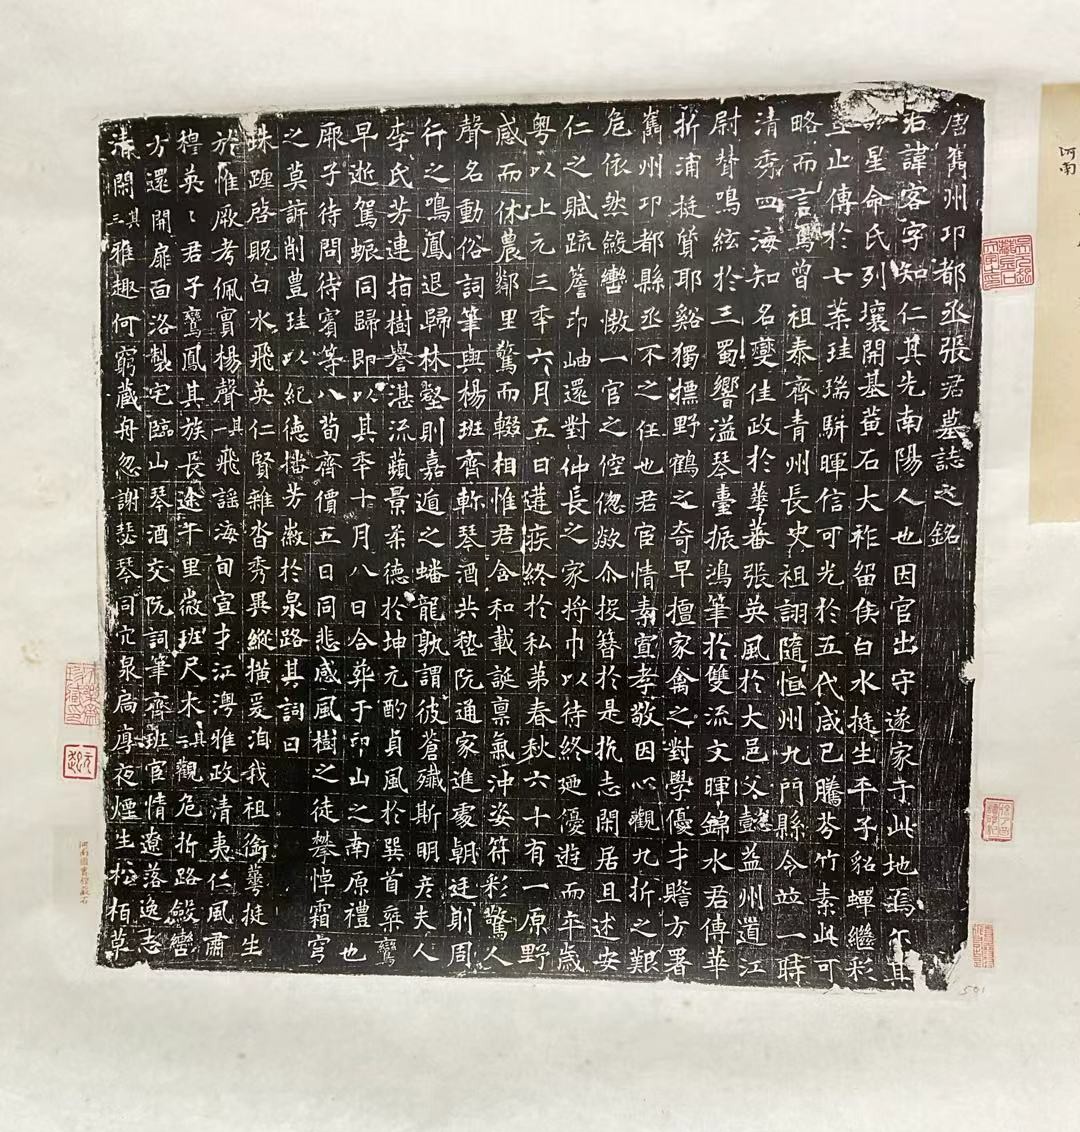 唐巂州邛都丞張君墓誌之銘
君諱客字知仁其先南陽人也因官出守遂家于此地焉尔其
星命氏列壤開基黄石大祚留侯白水挺生平子貂蟬繼彩
止傳於七葉珪瑞駢暉信可光於五代咸已騰芬竹素此可
略而言焉曾祖泰齊青州長史祖詡隨恒州九門縣令並一時
清秀四海知名夔佳政於蕚蕃張英風於大邑父懿益州道江
尉聲鳴絃於三蜀響溢琴臺振鴻筆於雙流文暉錦水君傳華
折浦挺質耶谿獨摽野鶴之奇早擅家禽之對學優才贍方署
巂州邛都縣丞不之任也君宦情素寡孝敬因心觀九折之艱
危依然斂轡懒一官之倥偬欻尒投簪於是抗志閑居且述安
仁之賦疏簷卬岫還對仲長之家將巾以待終廼優遊而卒歲
粤以上元三年六月五日遘疾終於私第春秋六十有一原野
感而休農鄰里驚而輟相惟君含和載誕禀氣沖姿符彩驚人
聲名動俗詞筆與楊班齊軫琴酒共嵇阮通家進處朝廷則周
行之鳴鳳退歸林壑則嘉遁之蟠龍孰謂彼蒼殲斯明彦夫人
李氏芳連指樹譽湛流蘋景柔德於坤元酌貞風於巽首乘鸞
早逝駕蜃同歸即以其年十月八日合葬于邙山之南原禮也
厥子待問待賓等八荀齊價五日同悲感風樹之徒攀悼霜穹
之莫訴削豊珪以紀德播芳徽於泉路其詞曰
珠躔啓貺白水飛英仁賢雜沓秀異縱横爰洎我祖銜蕚挺生
於惟厥考佩實楊聲其一飛謡海甸宣才江澚雅政清夷仁風肅
穆英〻君子鸞鳳其族長途千里微班尺木其二觀危折路斂轡
方還開扉面洛製宅臨山琴酒交阮詞筆齊班宦情遼落逸志
清閑其三雅趣何窮藏舟忽謝瑟琴同穴泉扃厚夜煙生松栢草
河南
河南圖書館藏石
501